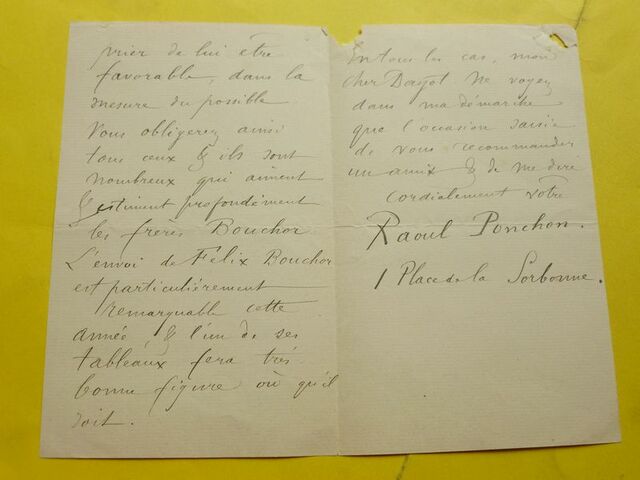 prier de lui etre
favorable, dans la
mesure du possible
Vous obligerez ainsi
tous ceux & ils sont
nombreux qui aiment
& estiment profondément
les frères Bouchor
L'envoi de Félix Bouchor
est particulièrement
remarquable cette
année & l'un de ses
tableaux fera très
bonne figure où qu'il
soit.
En tous les cas, mon
cher Dayot. Ne voyez
dans ma démarche
que l'occasion saisie
de vous recommander
un amix & de me dire
cordialement votre
Raoul Ponchon.
1 Place de la Sorbonne.